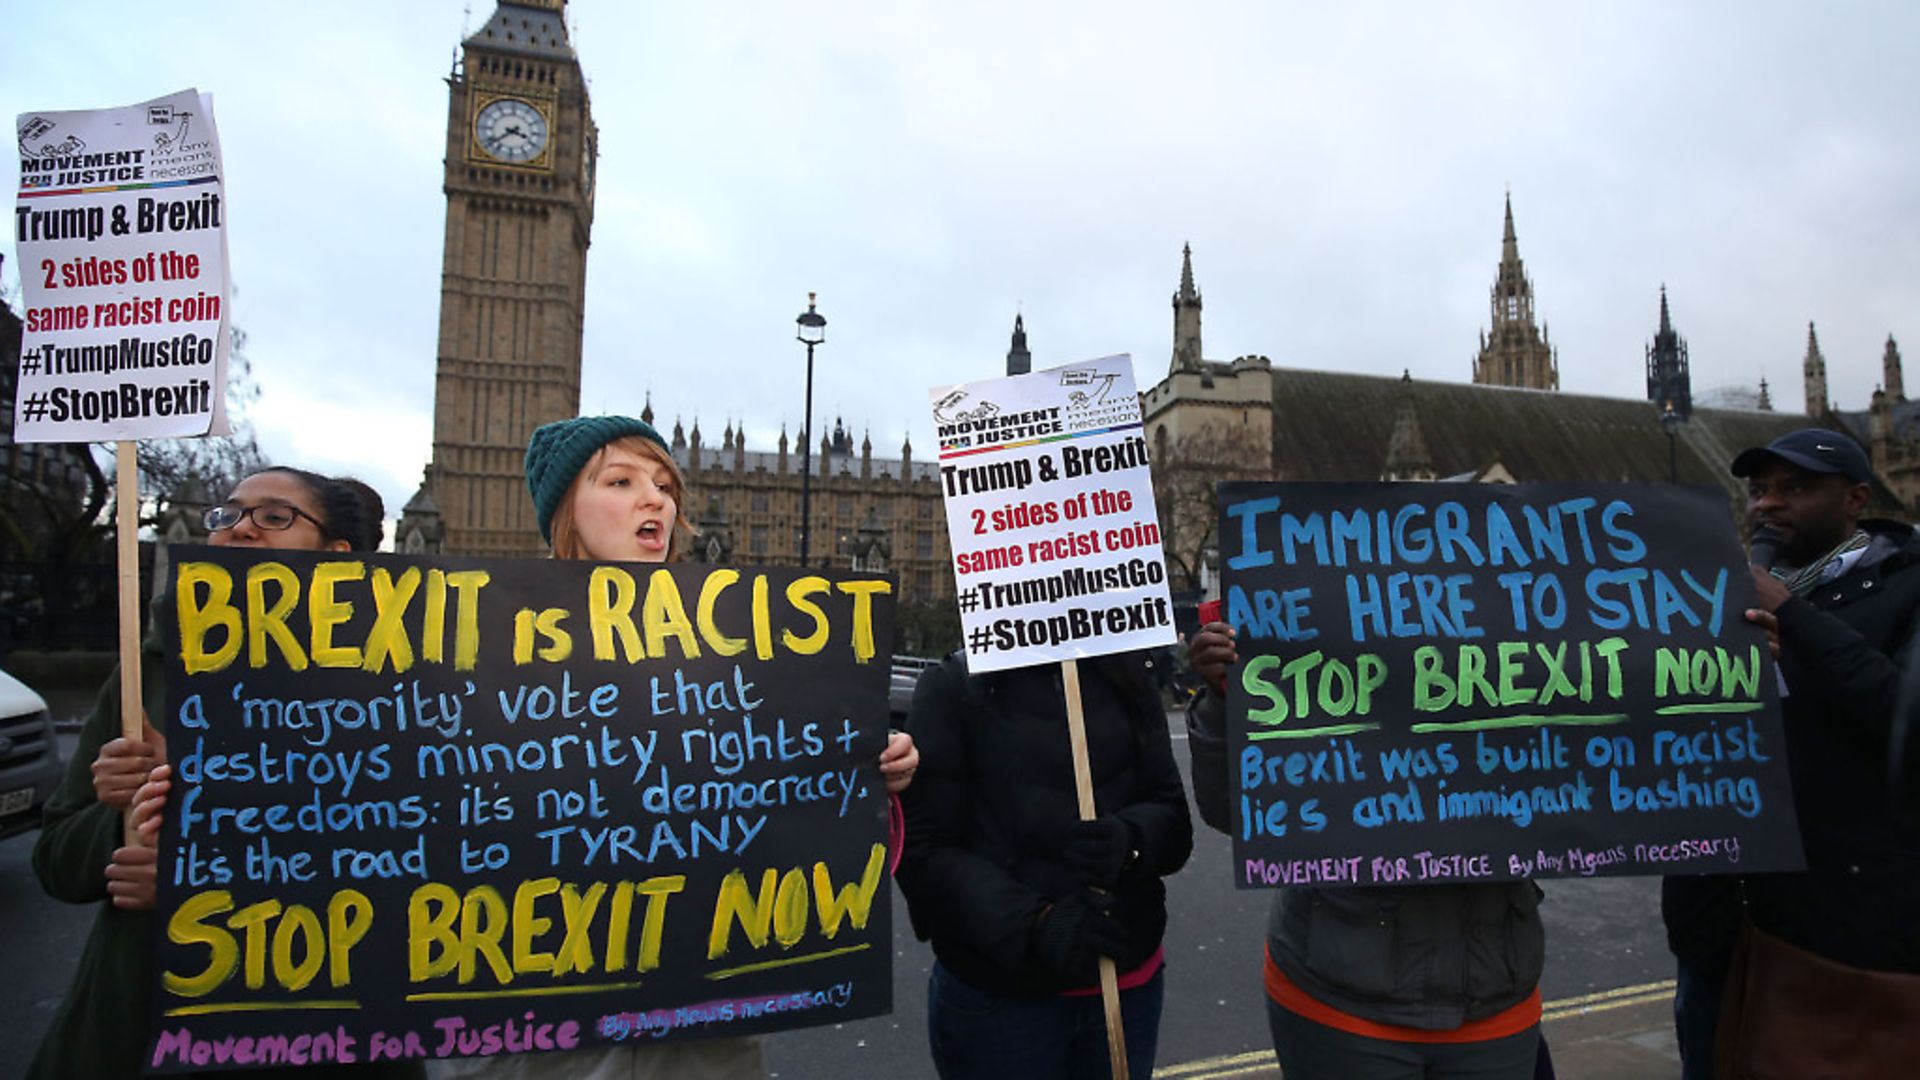 MOVEMENT
FOR JUSTICE
by any
means
necessary
Trump & Brexit
2 sides of the
same racist coin
#TrumpMustGo
#StopBrexit
BREXIT is RACIST
a 'majority' vote that
destroys minority rights +
freedoms: it's not democracy,
it's the road to TYRANNY
STOP BREXIT NOW
Movement FOR Justice By Any Means necessary
MOVEMENT
FOR JUSTICE
by any
means
necessary
Trump & Brexit
2 sides of the
same racist coin
#TrumpMustGo
#StopBrexit
IMMIGRANTS
ARE HERE TO STAY
STOP BREXIT NOW
Brexit was built on racist
lies and immigrant bashing
MOVEMENT FOR JUSTICE By Any Means necessary